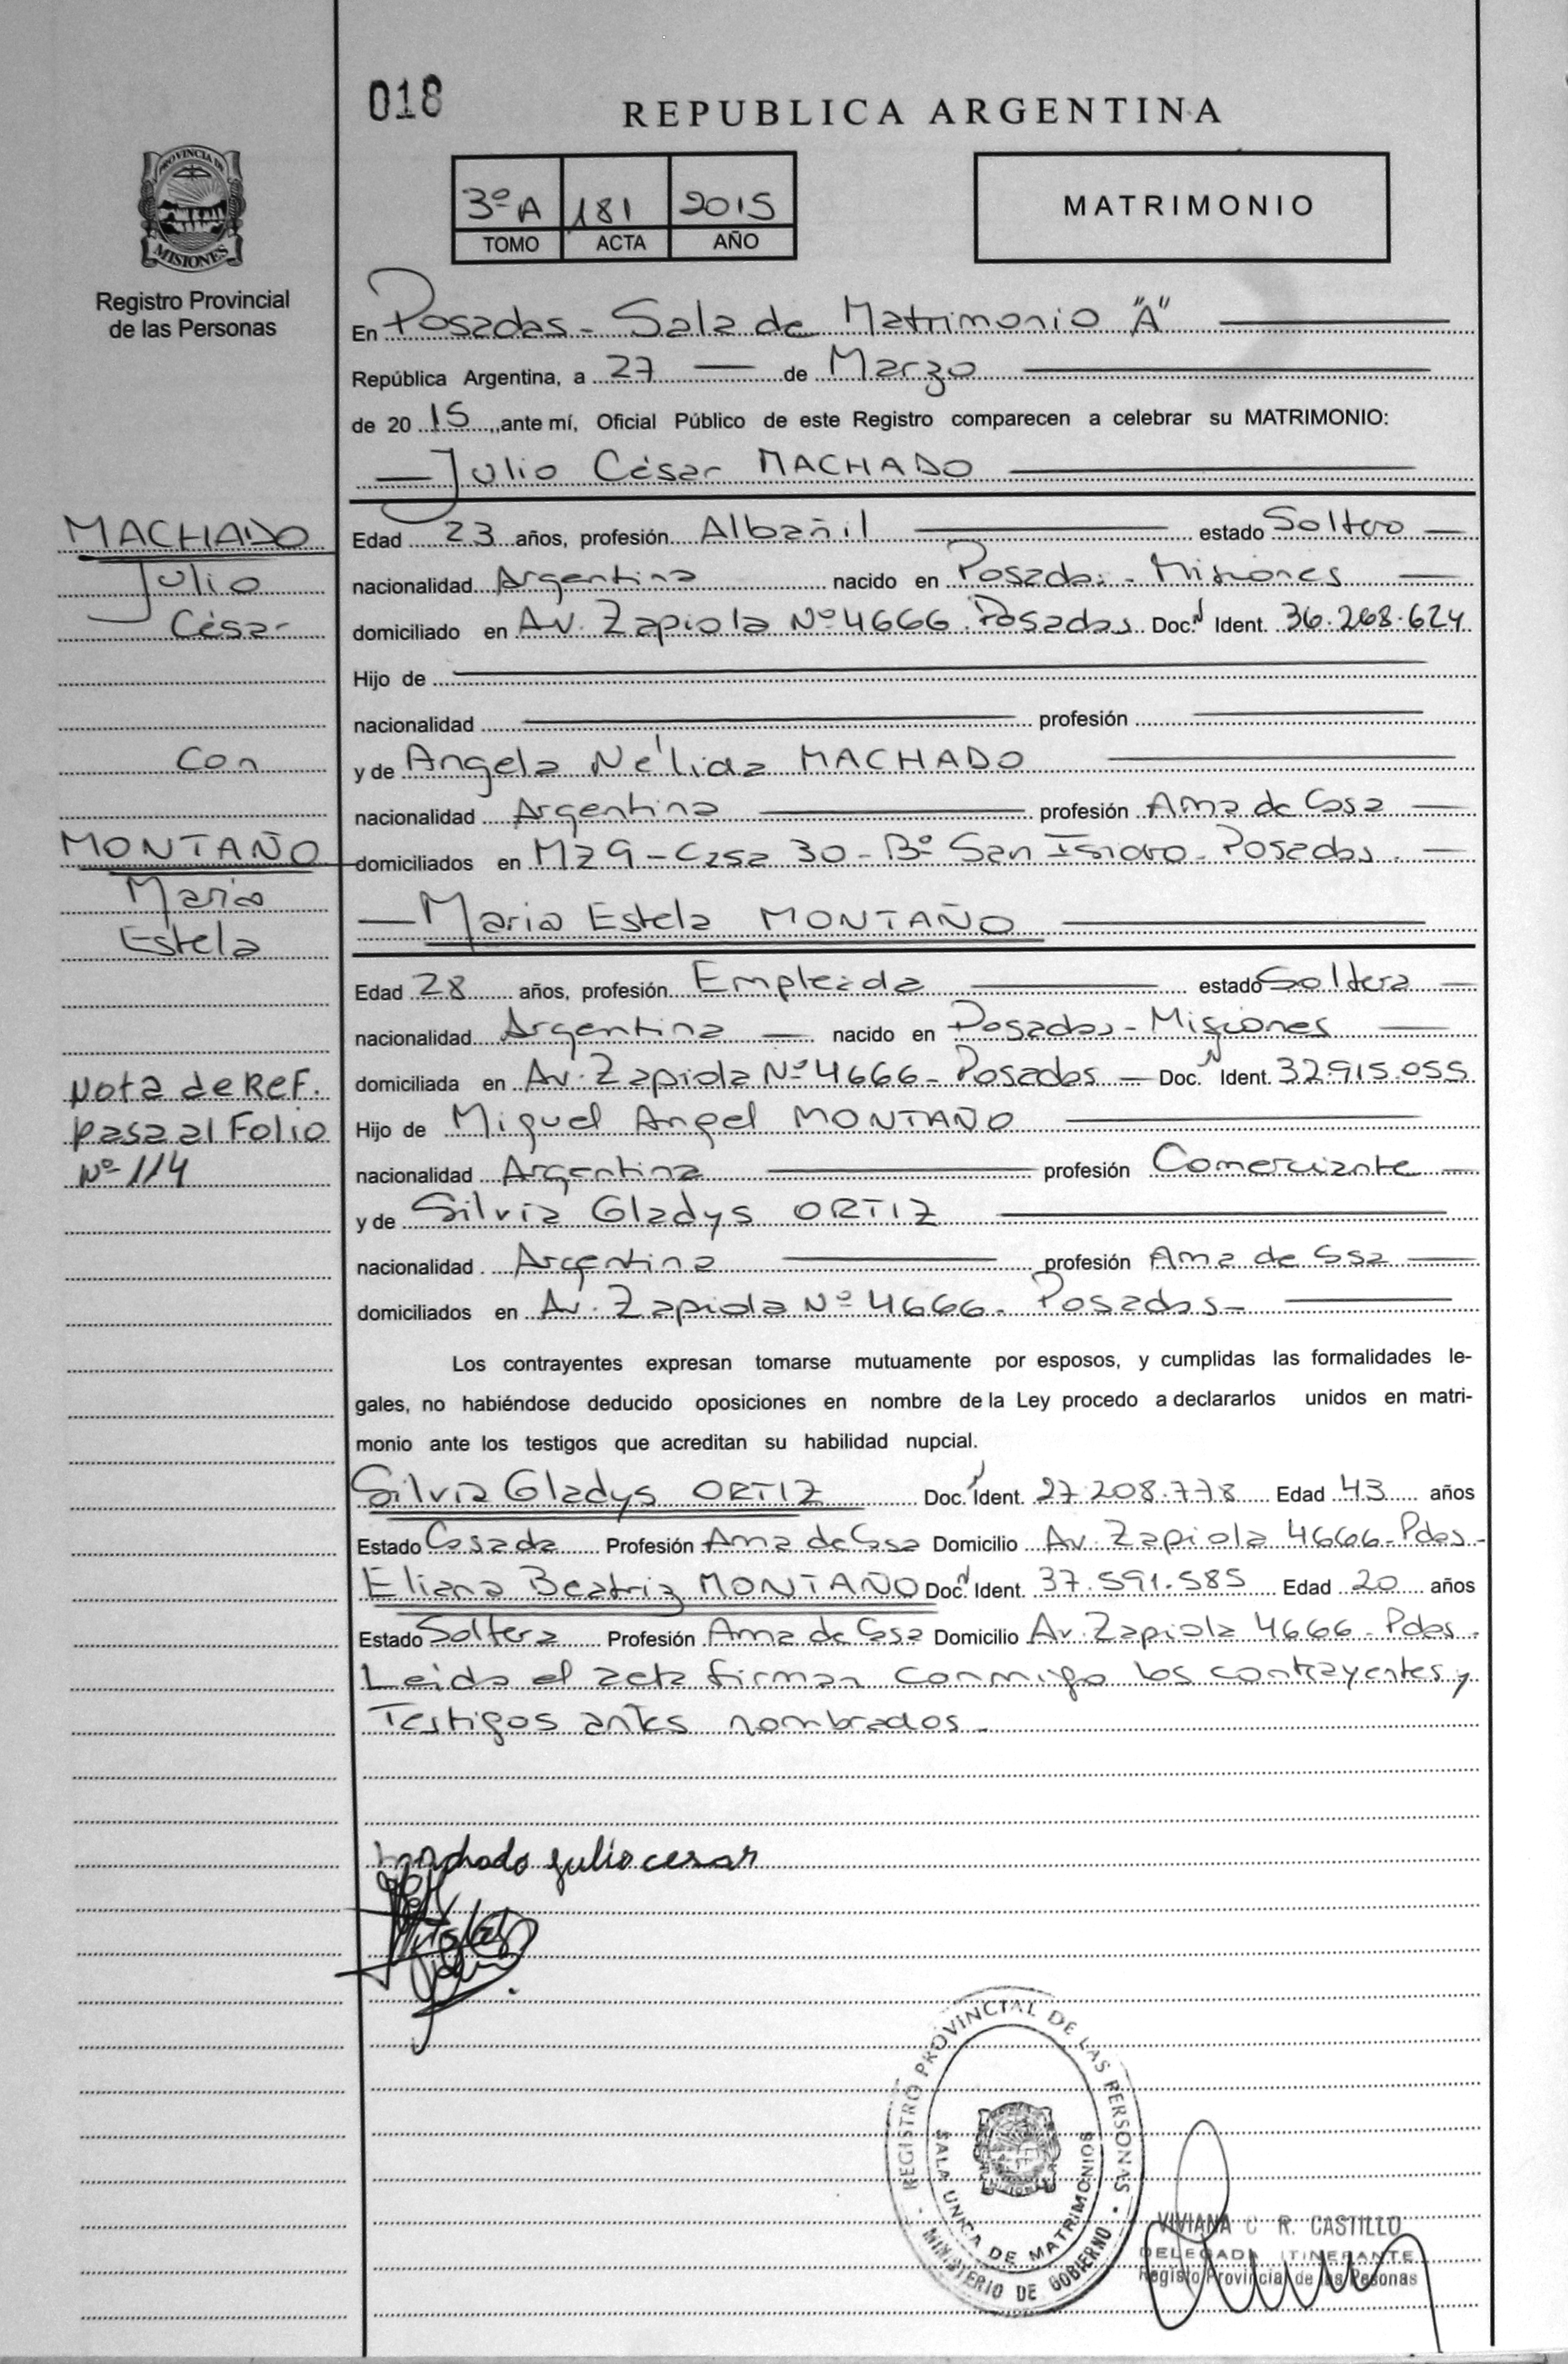 018
REPUBLICA ARGENTINA
PROVINCIA DE
MISIONES
Registro Provincial
de las Personas
3º A 181 2015
TOMO ACTA AÑO
MATRIMONIO
En Posadas - Sala de Matrimonio "A"
República Argentina, a 27 de Marzo
de 20 15 ,ante mí, Oficial Público de este Registro comparecen a celebrar su MATRIMONIO:
Julio César MACHADO
MACHADO
Julio
César
Con
MONTAÑO
Maria
Estela
Nota de Ref.
pasa al Folio
Nº 114
Edad 23 años, profesión Albañil estado Soltero
nacionalidad Argentina nacido en Posadas - Misiones
domiciliado en Av. Zapiola Nº 4666 Posadas Doc. N Ident. 36.268.624
Hijo de
nacionalidad profesión
y de Angela Nélida MACHADO
nacionalidad Argentina profesión Ama de Casa
domiciliados en Mz 9 - Casa 30 - Bº San Isidro - Posadas.
Maria Estela MONTAÑO
Edad 28 años, profesión Empleada estado Soltera
nacionalidad Argentina nacido en Posadas - Misiones
domiciliada en Av. Zapiola Nº 4666 - Posadas Doc. N Ident. 32.915.055
Hijo de Miguel Angel MONTAÑO
nacionalidad Argentina profesión Comerciante
y de Silvia Gladys ORTIZ
nacionalidad Argentina profesión Ama de Casa
domiciliados en Av. Zapiola Nº 4666 - Posadas -
Los contrayentes expresan tomarse mutuamente por esposos, y cumplidas las formalidades le-
gales, no habiéndose deducido oposiciones en nombre de la Ley procedo a declararlos unidos en matri-
monio ante los testigos que acreditan su habilidad nupcial.
Silvia Gladys ORTIZ Doc. N Ident. 27.208.778 Edad 43 años
Estado Casada Profesión Ama de Casa Domicilio Av. Zapiola 4666 - Pdas -
Eliana Beatriz MONTAÑO Doc. N Ident. 37.591.585 Edad 20 años
Estado Soltera Profesión Ama de Casa Domicilio Av. Zapiola 4666 - Pdas -
Leida el acta firman conmigo los contrayentes y
Testigos antes nombrados -
machado julio cesar
REGISTRO PROVINCIAL DE LAS PERSONAS
SALA UNICA DE MATRIMONIOS
MINISTERIO DE GOBIERNO
VIVIANA C R. CASTILLO
DELEGADA ITINERANTE
Registro Provincial de las Pesonas